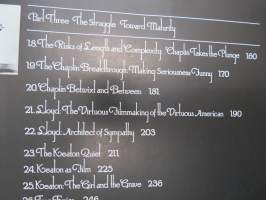 Part Three: The Struggle Toward Maturity
18. The Risks of Length and Complexity: Chaplin Takes the Plunge 160
19. The Chaplin Breakthrough: Making Seriousness Funny 170
20. Chaplin Betwixt and Between 181
21. Lloyd: The Virtuous Filmmaking of the Virtuous American 190
22. Lloyd: Architect of Sympathy 203
23. The Keaton Quiet 211
24. Keaton as Film 225
25. Keaton: The Girl and the Grave 236
246